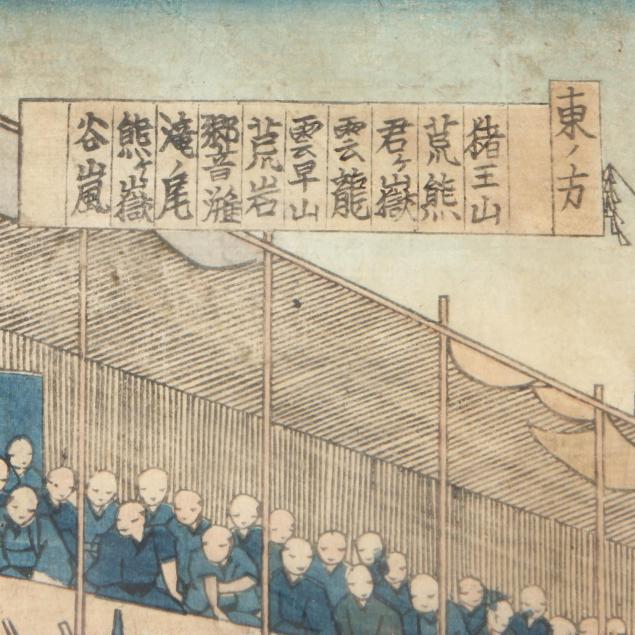 東ノ方
猪王山
荒熊
君ヶ嶽
雲龍
雲早山
荒岩
響灘
滝ノ尾
熊ヶ嶽
谷嵐